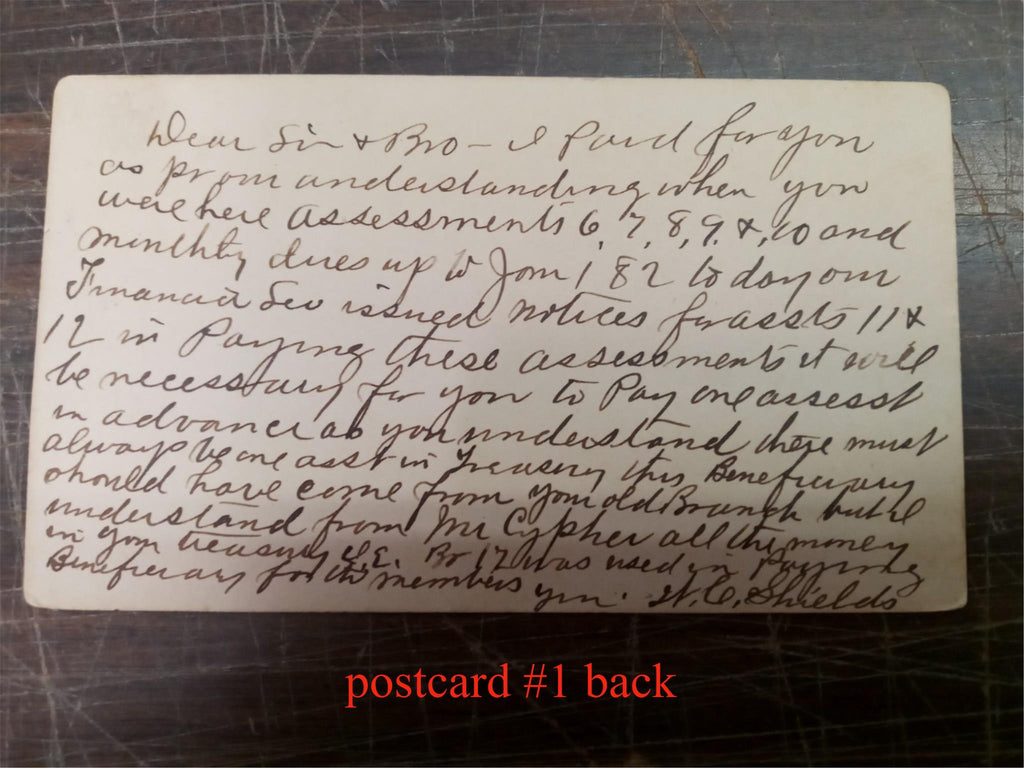 Dear Sir & Bro - I Paid for you
as pr our understanding when you
were here assessments 6, 7, 8, 9, &, 10 and
monthly dues up to Jan 1 82 to day our
Financial Sec issued notices for assts 11 &
12 in Paying these assessments it will
be necessary for you to Pay one assesst
in advance as you understand there must
always be one asst in Treasury this Beneficiary
should have come from your old Branch but I
understand from Mr Cypher all the money
in your treasury I.E. Br 17 was used in Paying
Beneficiary for the members yrs. W. C. Shields
postcard #1 back